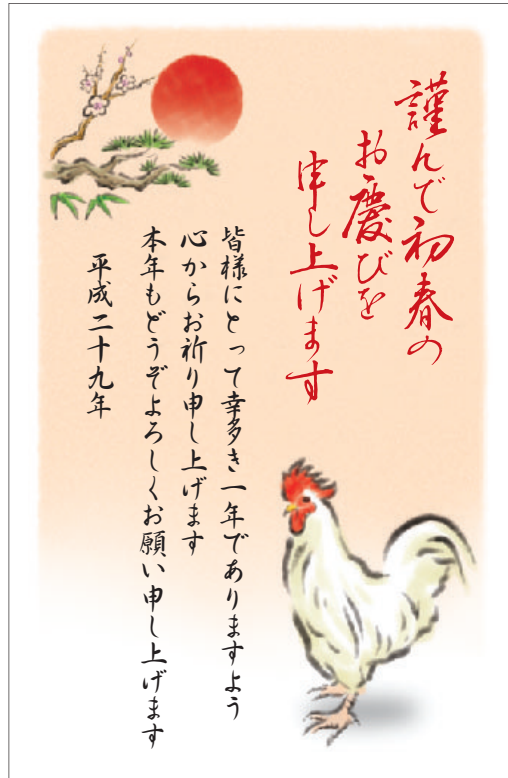 謹んで初春の
お慶びを
申し上げます
皆様にとって幸多き一年でありますよう
心からお祈り申し上げます
本年もどうぞよろしくお願い申し上げます
平成二十九年